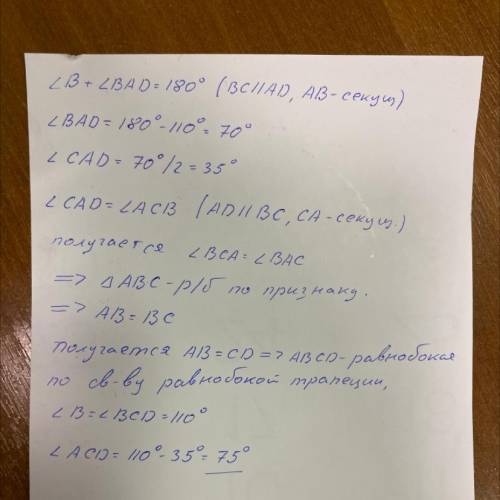 ∠B + ∠BAD = 180° (BC∥AD, AB - секущ)
∠BAD = 180° - 110° = 70°
∠CAD = 70°/2 = 35°
∠CAD = ∠ACB (AD∥BC, CA - секущ.)
получается ∠BCA = ∠BAC
=> △ABC - р/б по признаку.
=> AB = BC
Получается AB = CD => ABCD - равнобокая
по св-ву равнобокой трапеции,
∠B = ∠BCD = 110°
∠ACD = 110° - 35° = 75°